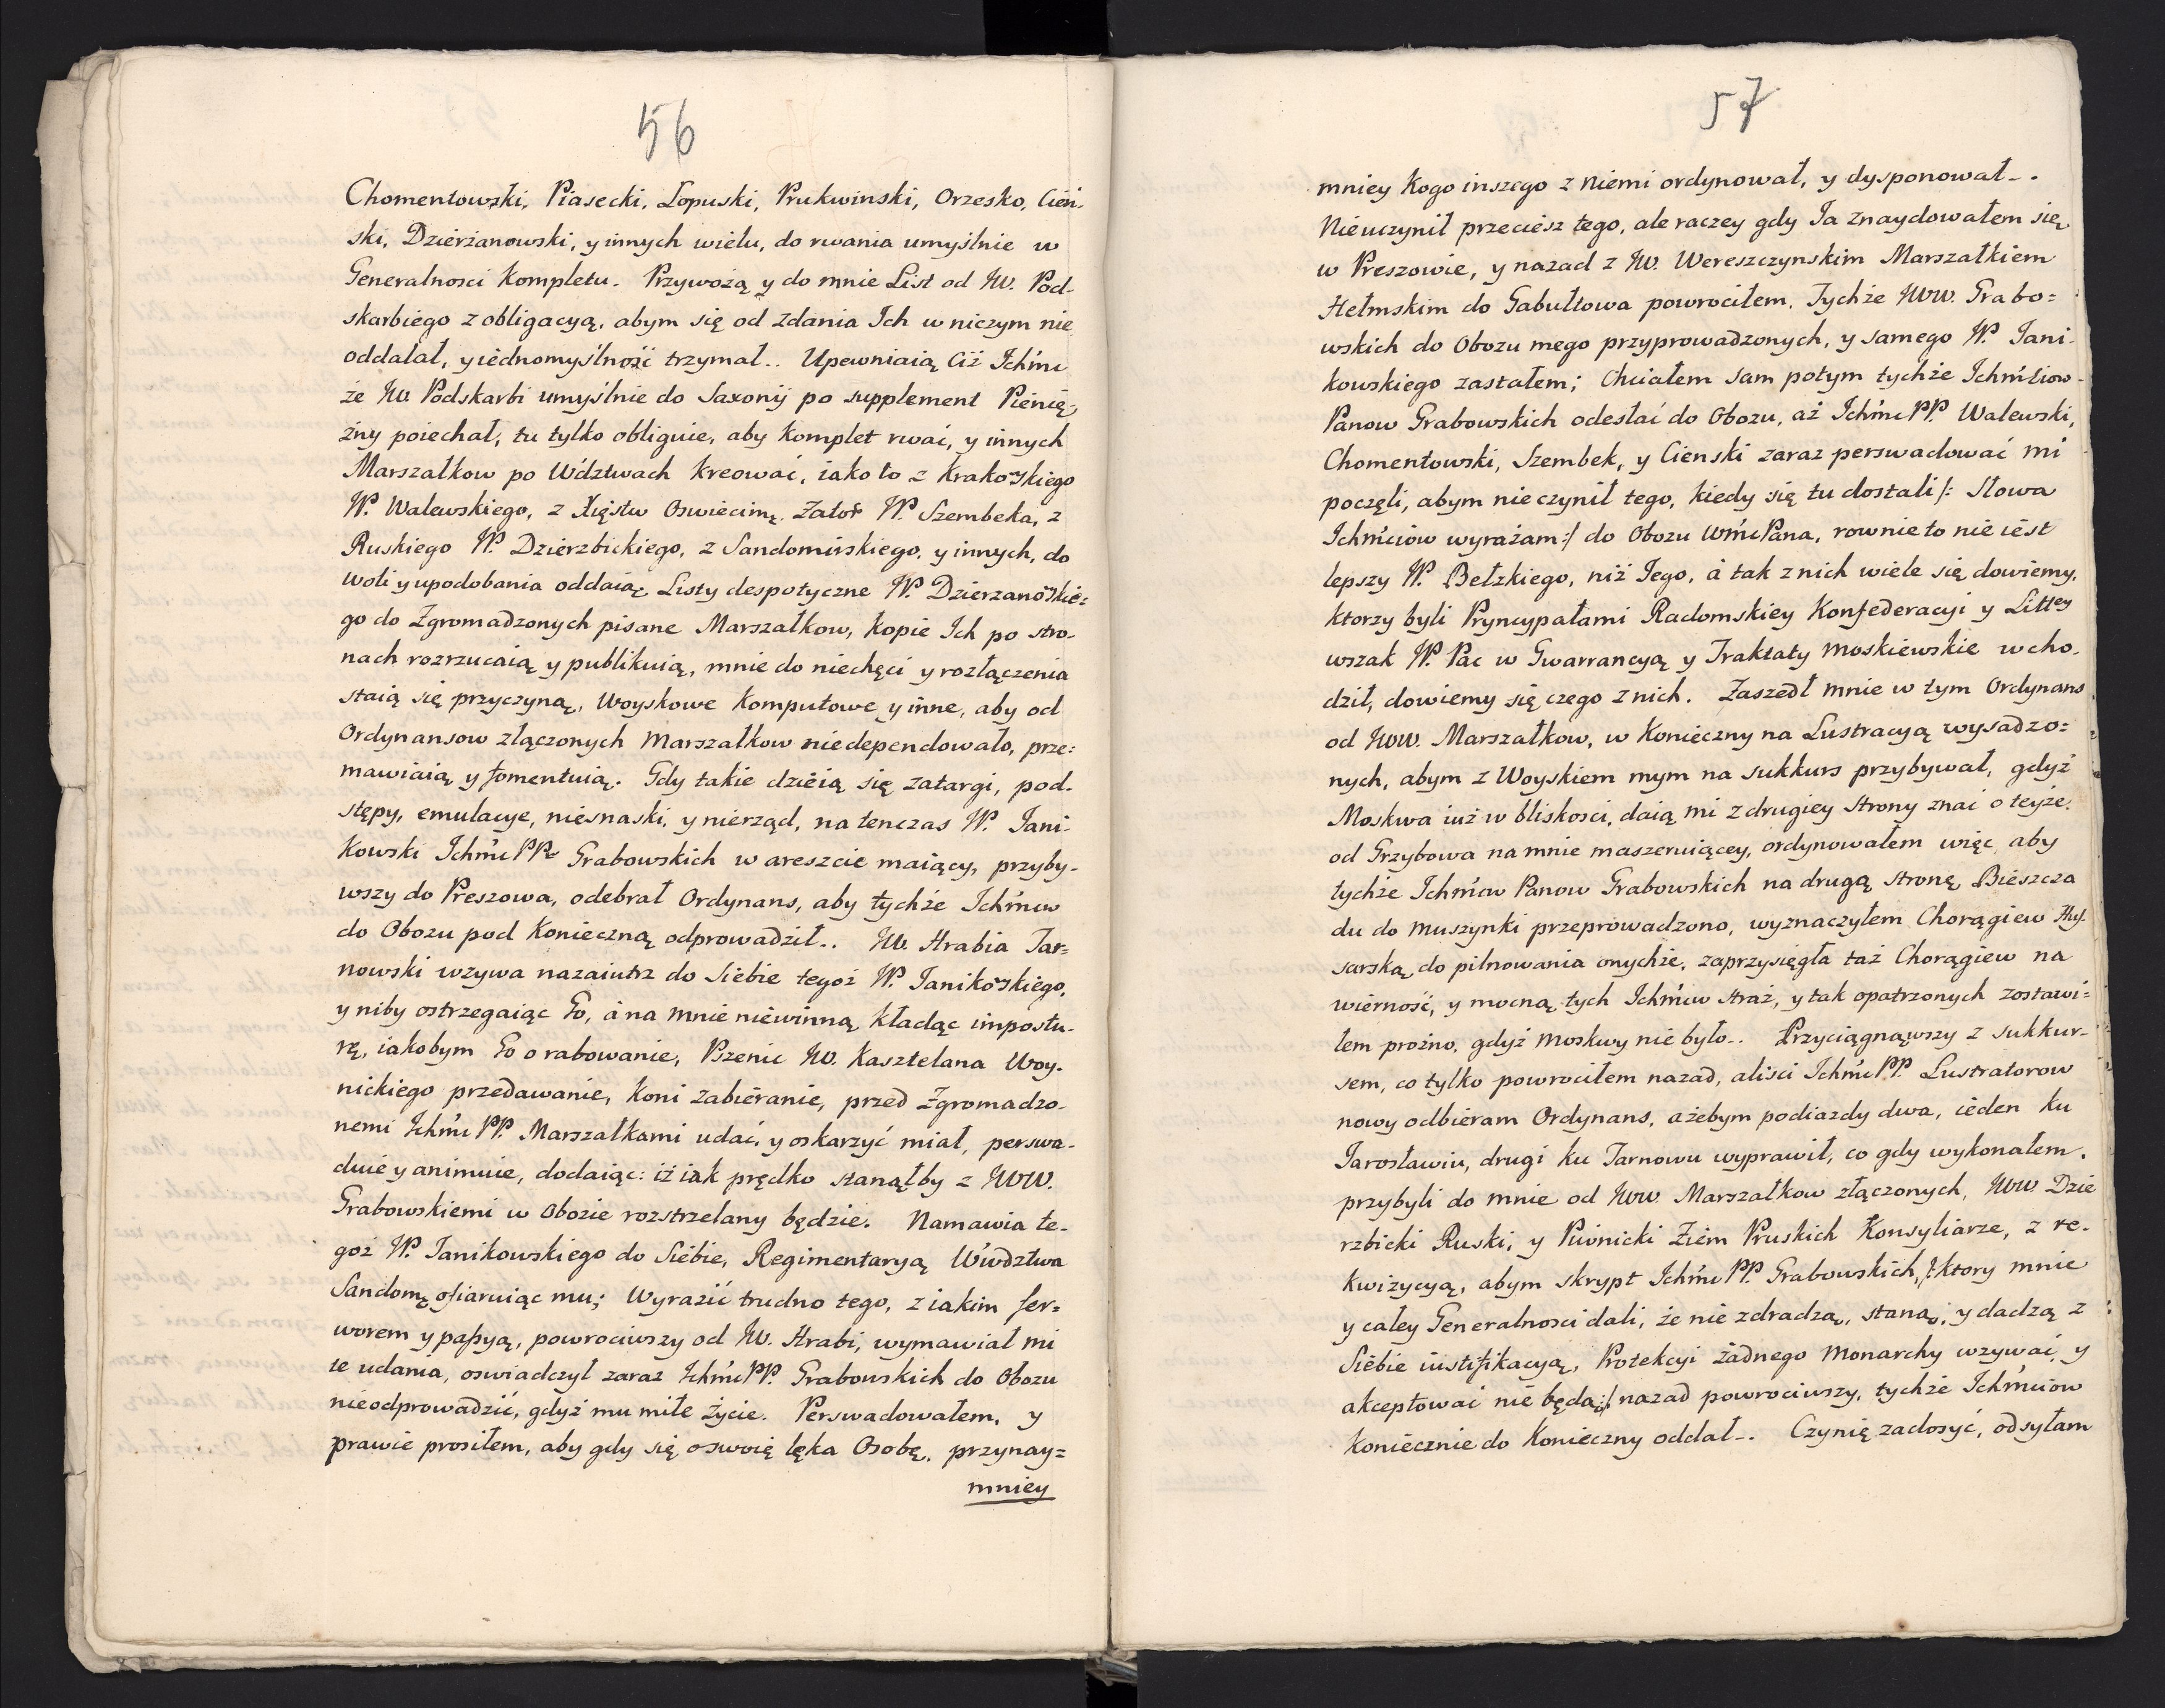 56
Chomentowski, Piasecki, Łopuski, Prukwinski, Orzesko, Cień-
ski, Dzierżanowski, y innych wielu, do rwania umyślnie w
Generalnosci Kompletu. Przywożą y do mnie List od JW. Pod-
skarbiego z obligacyą, abym się od zdania Ich w niczym nie
oddalał, y iednomyślność trzymał.. Upewniaią Ciż Ichmć
że JW. Podskarbi umyślnie do Saxonij po supplement Pienię-
żny poiechał, tu tylko obliguie, aby Komplet rwać, y innych
Marszałkow po Wdztwach kreować, iako to z Krakoskiego
W. Walewskiego, z Xięstw Oswiecim. Zator W. Szembeka, z
Ruskiego W. Dzierzbickiego, z Sandomirskiego, y innych, do
woli y upodobania oddaią Listy despotyczne W. Dzierzanoskie=
go do Zgromadzonych pisane Marszałkow, Kopie Ich po stro-
nach rozrzucaią y publikuią, mnie do niechęci y rozłączenia
staią się przyczyną, Woyskowe Komputowe y inne, aby od
Ordynansow złączonych Marszałkow niedependowało, prze=
mawiaią y fomentuią. Gdy takie dzieią się zatargi, pod-
stępy, emulacye, niesnaski, y nierząd, na tenczas W. Jani-
kowski Ichmć PP. Grabowskich w areszcie maiący, przyby-
wszy do Preszowa, odebrał Ordynans, aby tychże Ichmćw
do Obozu pod Konieczną odprowadził.. JW. Hrabia Tar=
nowski wzywa nazaiutrz do Siebie tegoż W. Janikoskiego,
y niby ostrzegaiąc Go, á na mnie niewinną kładąc impostu-
rę, iakobym Go o rabowanie, Pszenic JW. Kasztelana Woy-
nickiego przedawanie, koni zabieranie, przed Zgromadzo-
nemi Ichmć PP. Marszałkami udać, y oskarzyć miał, perswa-
duie y animuie, dodaiąc: iż iak prędko stanąłby z JWW.
Grabowskiemi w Obozie rozstrzelany będzie. Namawia te-
goż W. Janikowskiego do Siebie, Regimentaryą Wwdztwa
Sandom. ofiaruiąc mu; Wyrazić trudno tego, z iakim fer=
worem y passyą, powrociwszy od JW. Hrabi, wymawiał mi
te udania, oswiadczył zaraz Ichmć PP. Grabowskich do Obozu
nieodprowadzić, gdyż mu miłe życie. Perswadowałem, y
prawie prosiłem, aby gdy się o swoię lęka Osobę, przynay=
mniey
57
mniey kogo inszego z niemi ordynował, y dysponował..
Nieuczynił przeciesz tego, ale raczey gdy Ja znaydowałem się
w Preszowie, y nazad z JW. Wereszczynskim Marszałkiem
Hełmskim do Gabułtowa powrociłem, Tychże JWW. Grabo=
wskich do Obozu mego przyprowadzonych, y samego W. Jani-
kowskiego zastałem; Chciałem sam potym tychże Ichmściow
Panow Grabowskich odesłać do Obozu, aż Ichmć PP. Walewski,
Chomentowski, Szembek, y Cienski zaraz perswadować mi
poczęli, abym nie czynił tego, kiedy się tu dostali /: Słowa
Ichmćiow wyrażam :/ do Obozu WmćPana, rownie to nie iest
lepszy W. Bełzkiego, niż Jego, á tak z nich wiele się dowiemy,
ktorzy byli Pryncypałami Radomskiey Konfederacyi y Littey
wszak W. Pac w Gwarrancyą y Traktaty Moskiewskie wcho-
dził, dowiemy się czego z nich. Zaszedł mnie w tym Ordynans
od JWW. Marszałkow, w Konieczny na Lustracyą wysadzo=
nych, abym z Woyskiem mym na sukkurs przybywał, gdyż
Moskwa iuż w bliskosci, daią mi z drugiey strony znać o teyże,
od Grzybowa na mnie maszeruiącey, ordynowałem więc, aby
tychże Ichmćw Panow Grabowskich na drugą stronę Bieszcza
du do Muszynki przeprowadzono, wyznaczyłem Chorągiew Hus
sarską, do pilnowania onychże, zaprzysięgła taż Chorągiew na
wierność, y mocną tych Ichmćw straż, y tak opatrzonych zostawi=
łem prożno, gdyż Moskwy nie było.. Przyciągnąwszy z sukkur-
sem, co tylko powrociłem nazad, alisci Ichmć PP. Lustratorow
nowy odbieram Ordynans, ażebym podiazdy dwa, ieden ku
Jarosławiu, drugi ku Tarnowu wyprawił, co gdy wykonałem,
przybyli do mnie od JWW. Marszałkow złączonych, JWW. Dzie
rzbicki Ruski, y Piwnicki Ziem Pruskich Konsyliarze, z re-
kwizycyą, abym skrypt Ichmć PP. Grabowskich, /: ktory mnie
y całey Generalnosci dali, że nie zdradzą, staną, y dadzą z
Siebie iustifikacyą, Protekcyi żadnego Monarchy wzywać, y
akceptować nie będą :/ nazad powrociwszy, tychże Ichmćiow
koniecznie do Konieczny oddał.. Czynię zadosyć, odsyłam